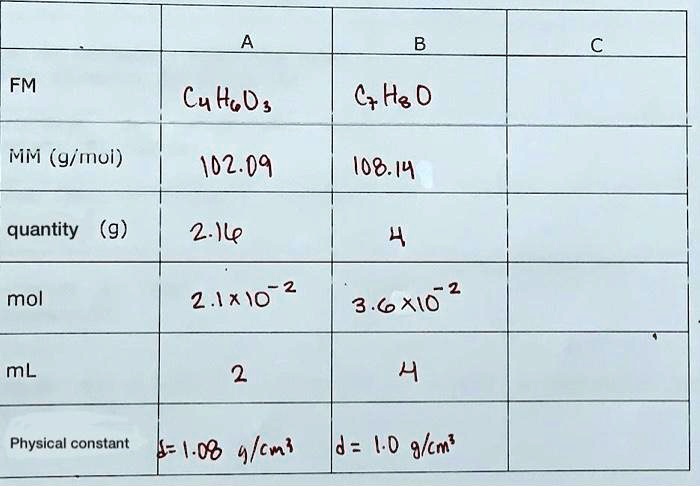 A B C
FM C₄H₆O₃ C₇H₈O
MM (g/mol) 102.09 108.14
quantity (g) 2.16 4
mol 2.1 x 10⁻² 3.6 x 10⁻²
mL 2 4
Physical constant d= 1.08 g/cm³ d= 1.0 g/cm³